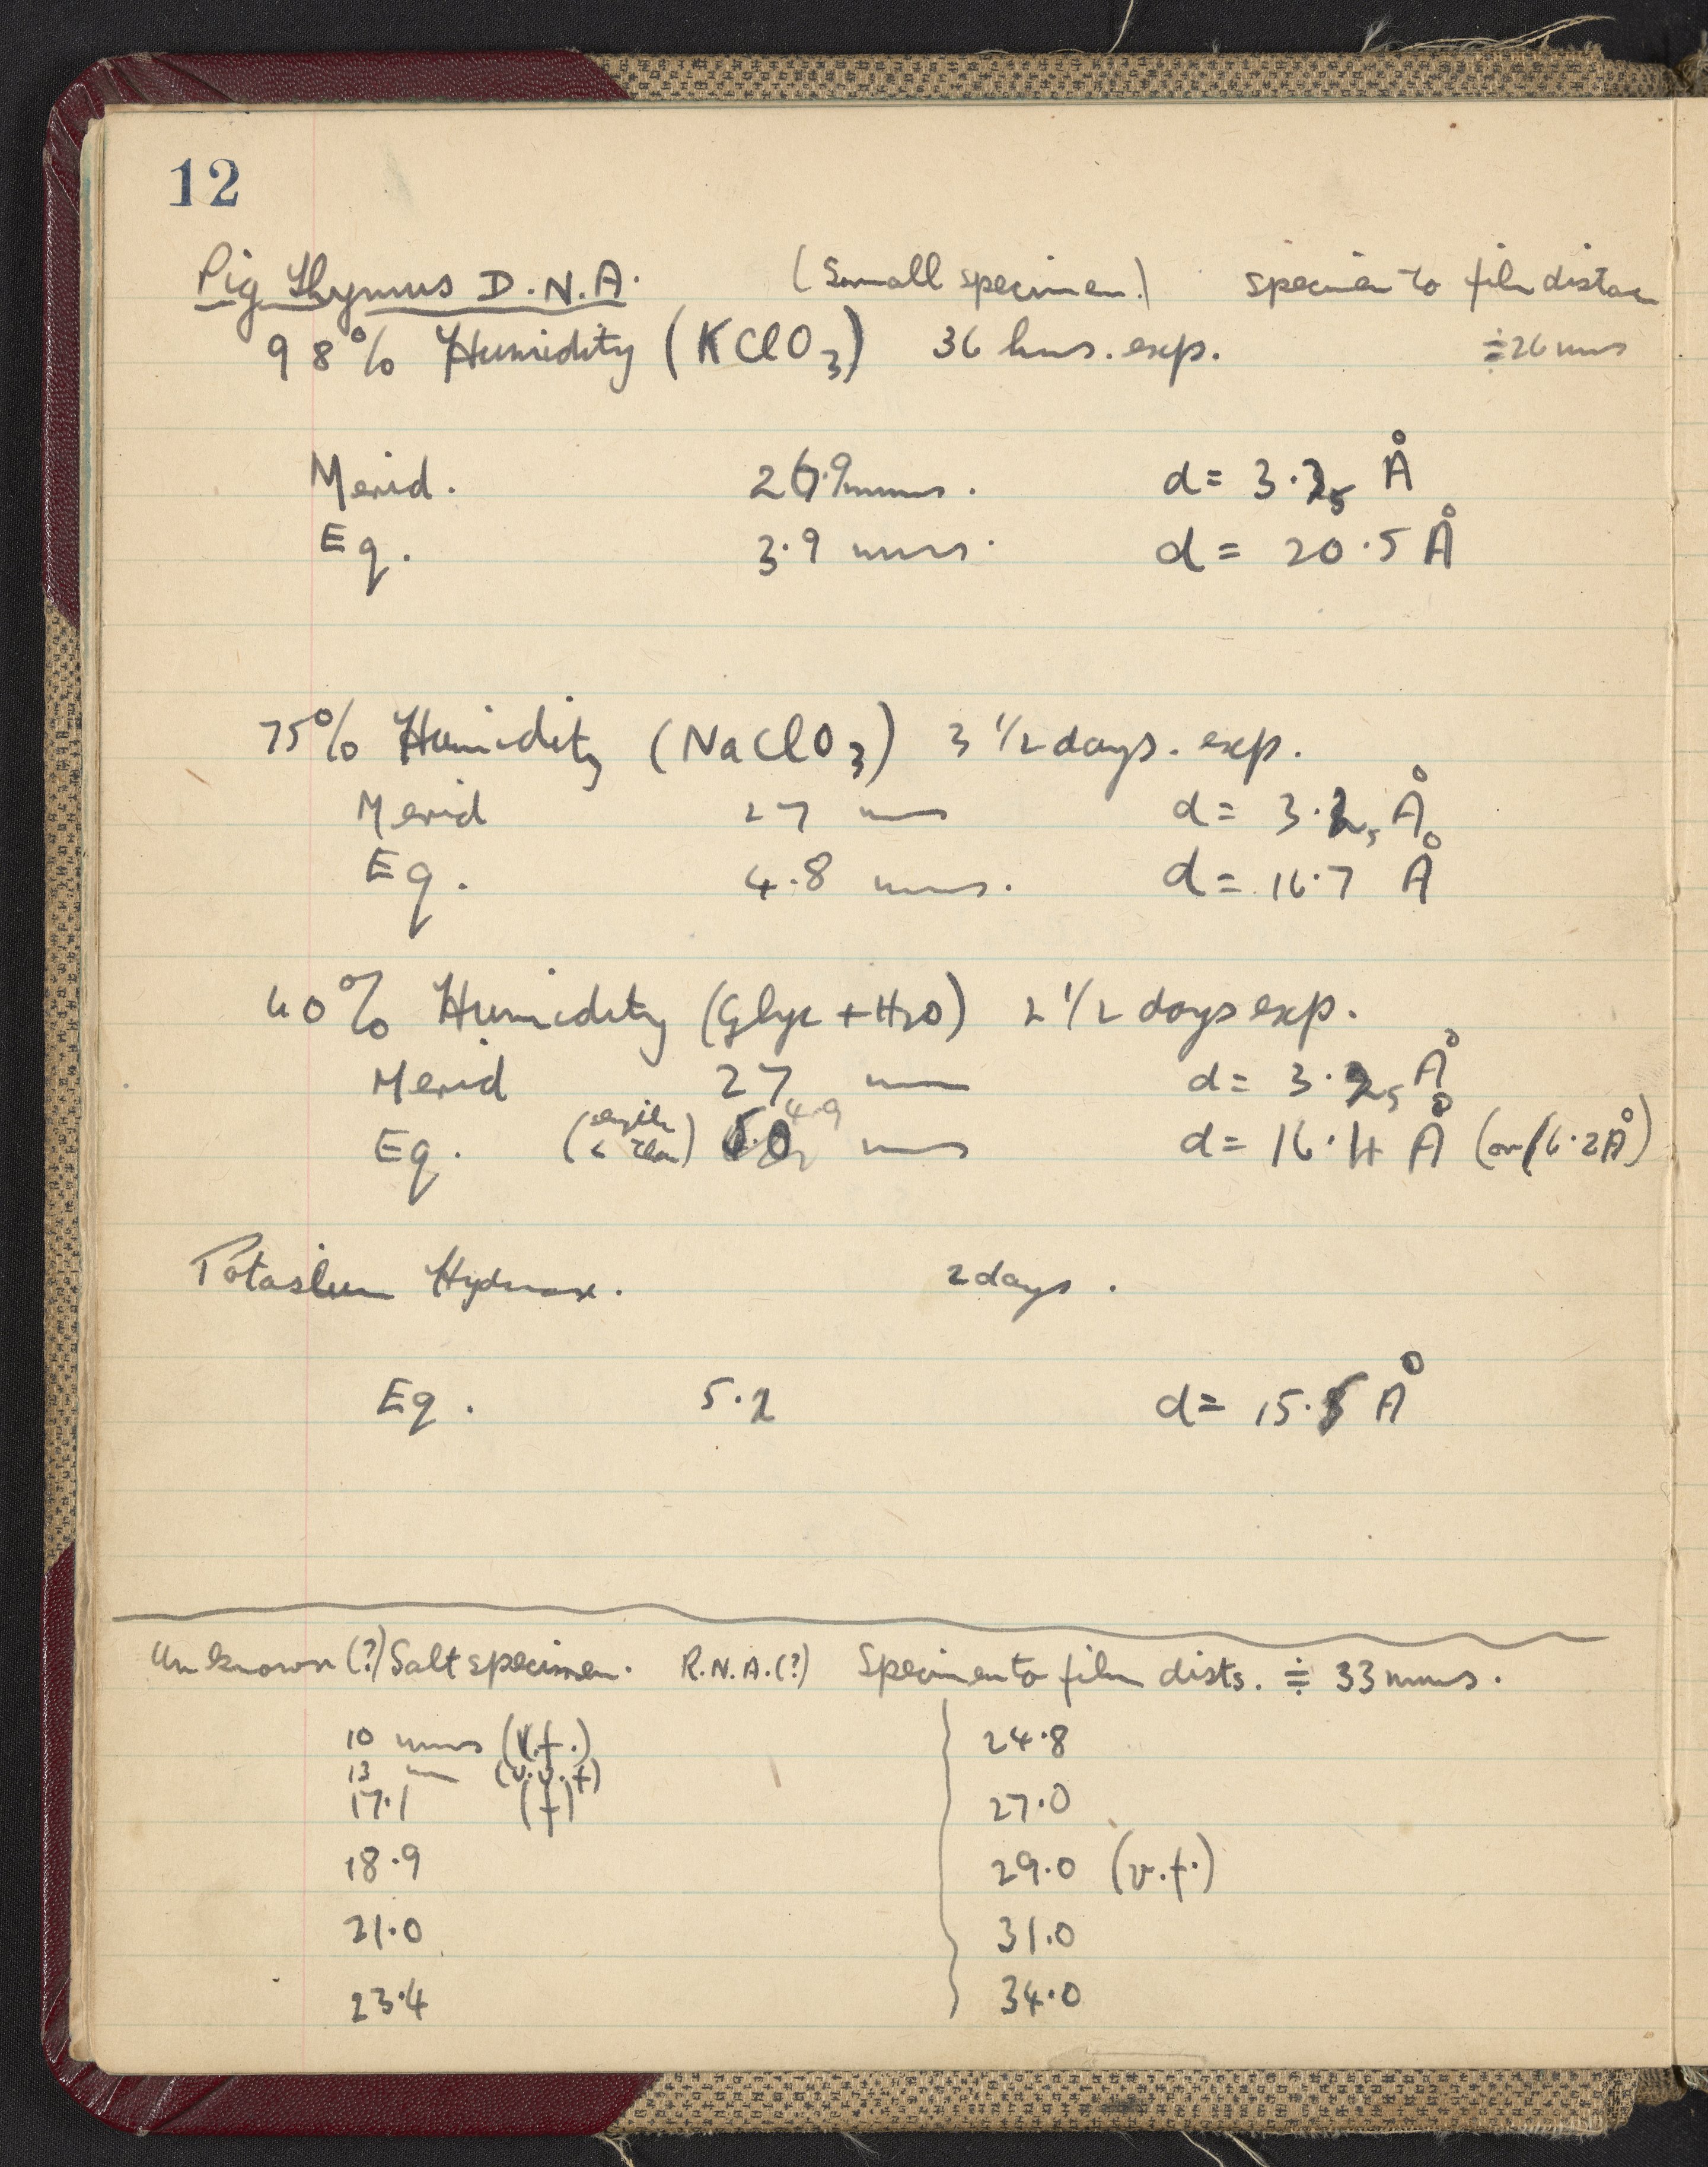 12
Pig Thymus D.N.A. (Small specimen) specimen to film distance
98% Humidity (KClO3) 36 hrs. exp. ≑26 mms
Merid. 26.9 mms. d = 3.25 Å
Eq. 3.9 mms. d = 20.5 Å
75% Humidity (NaClO3) 3 1/2 days. exp.
Merid 27 mm d = 3.25 Å
Eq. 4.8 mms. d = 16.7 Å
40% Humidity (Glyc + H2O) 2 1/2 days exp.
Merid 27 mm d = 3.25 Å
Eq. 5.0 4.9 mms d = 16.4 Å (or 16.2Å)
Potassium Hydrox. 2 days.
Eq. 5.2 d = 15.5 Å
Unknown (?) Salt specimen. R.N.A.(?) Specimen to film dists. ≑ 33 mms.
10 mms (v.f.) 24.8
13 mm (v.v.f)
17.1 (f) 27.0
18.9 29.0 (v.f.)
21.0 31.0
23.4 34.0